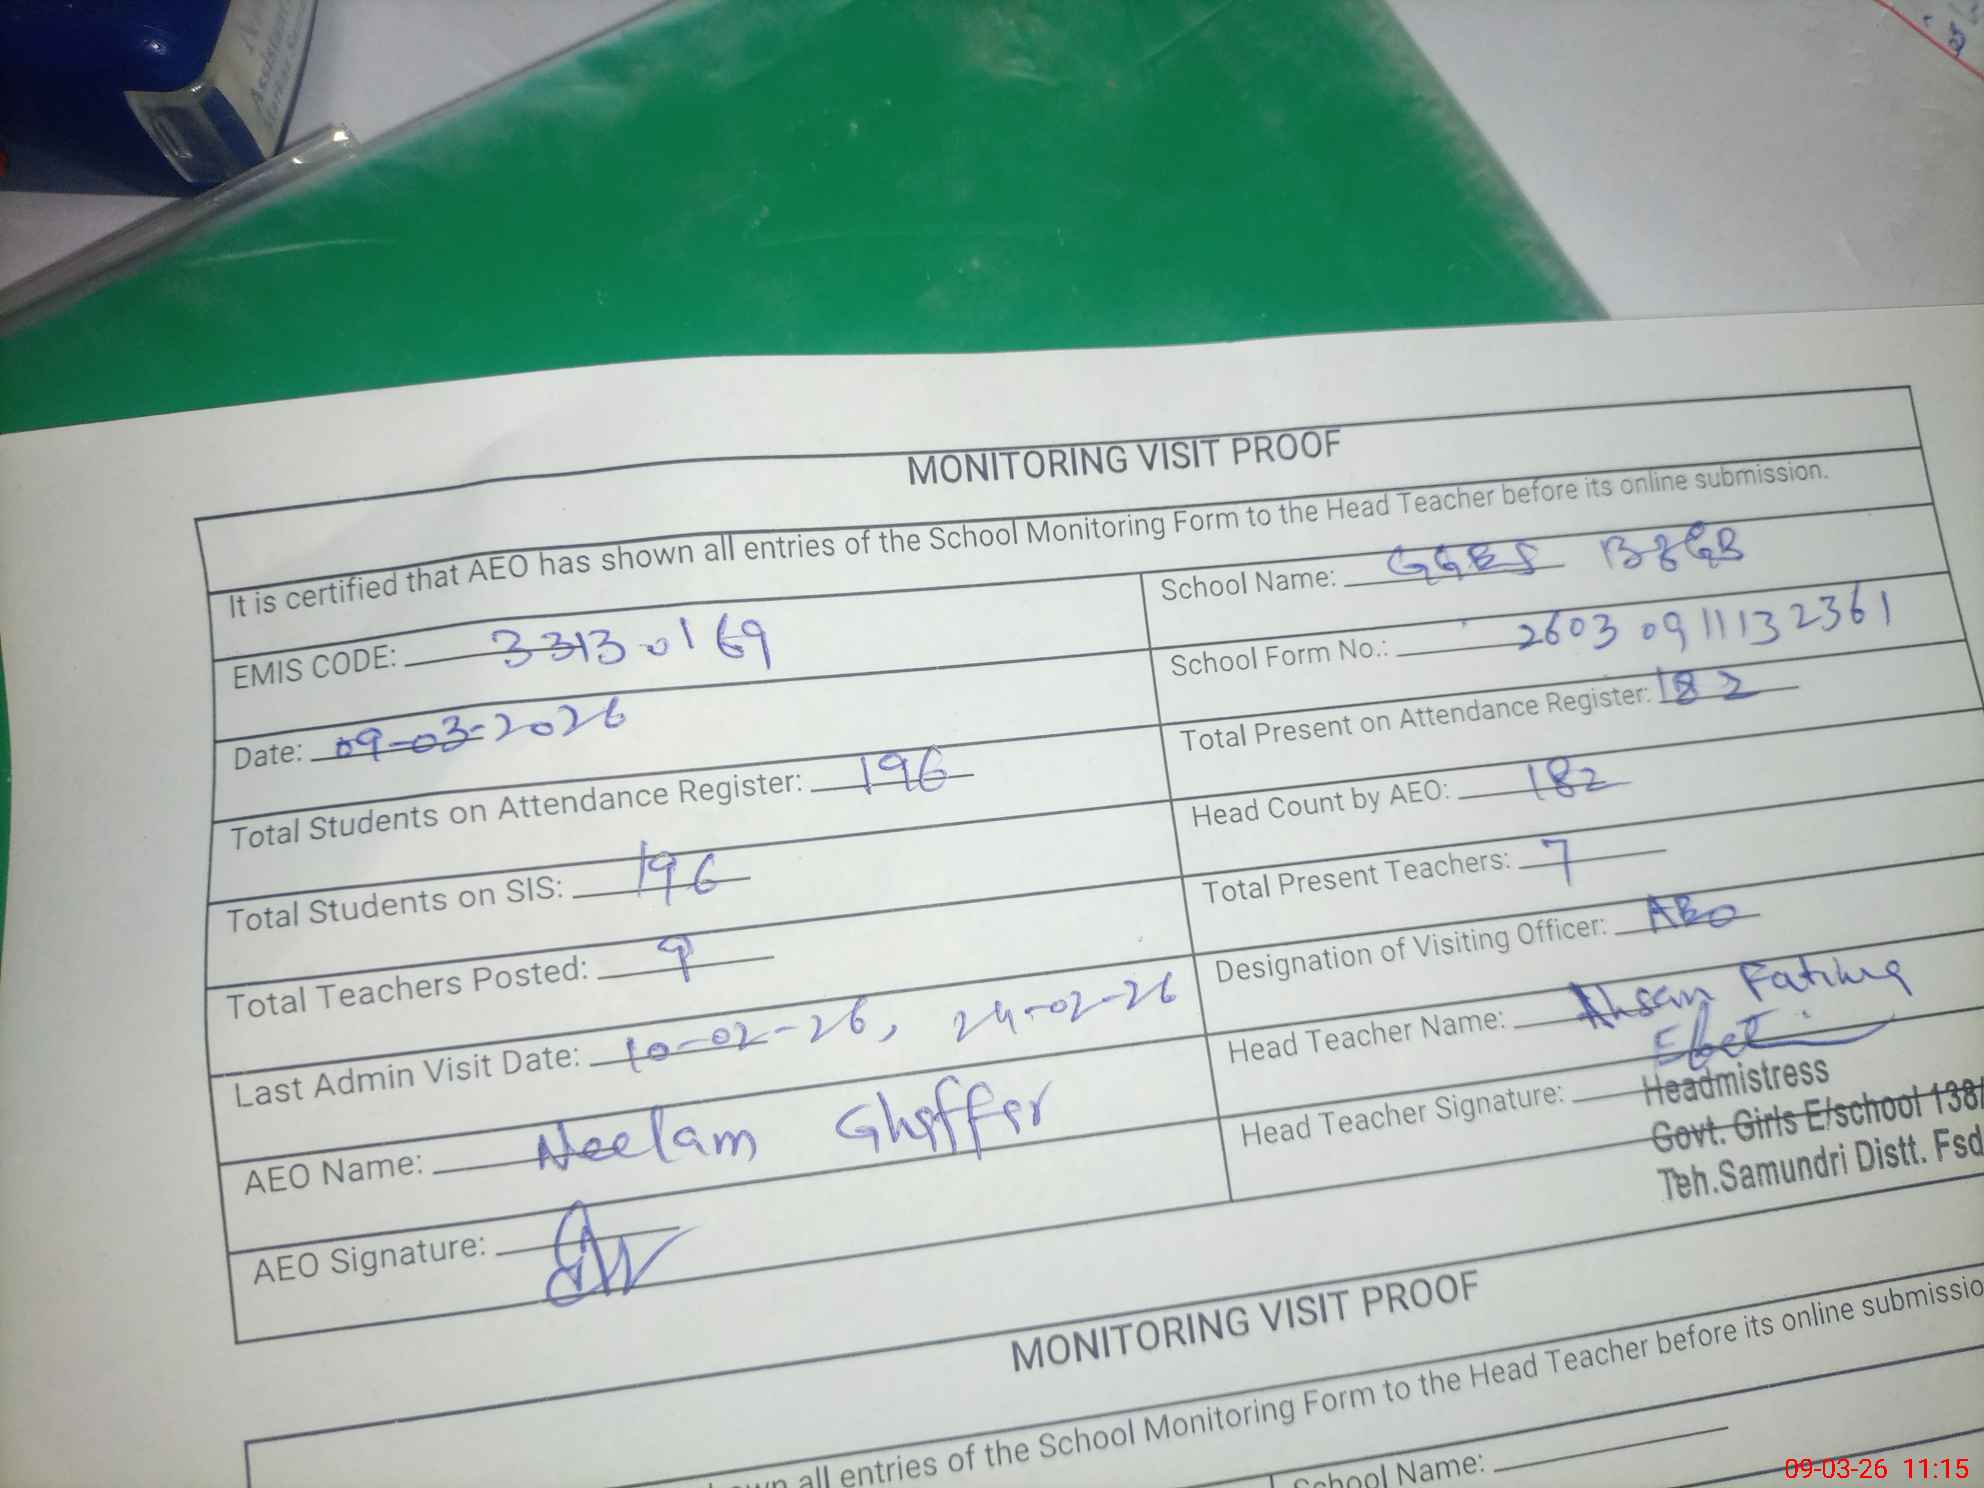 MONITORING VISIT PROOF
It is certified that AEO has shown all entries of the School Monitoring Form to the Head Teacher before its online submission.
EMIS CODE: 33130169
School Name: GGES 138GB
Date: 09-03-2026
School Form No.: 2603 0911132361
Total Students on Attendance Register: 196
Total Present on Attendance Register: 182
Total Students on SIS: 196
Head Count by AEO: 182
Total Teachers Posted: 9
Total Present Teachers: 7
Last Admin Visit Date: 10-02-26, 24-02-26
Designation of Visiting Officer: AEO
AEO Name: Neelam Ghaffar
Head Teacher Name: Ahsan Fatima
AEO Signature:
Head Teacher Signature:
Headmistress
Govt. Girls E/school 138/
Teh.Samundri Distt. Fsd
MONITORING VISIT PROOF
all entries of the School Monitoring Form to the Head Teacher before its online submissio
School Name:
09-03-26 11:15